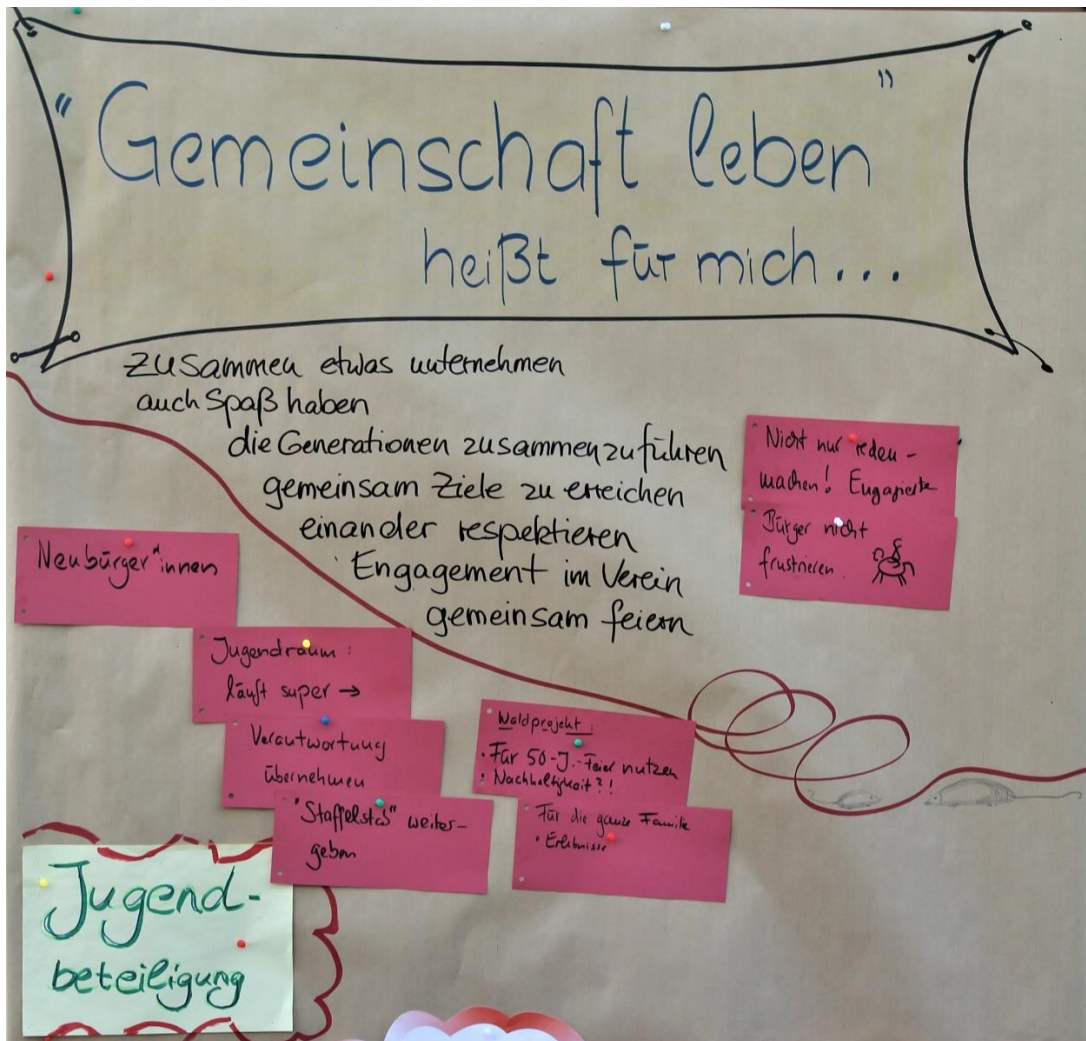 "Gemeinschaft leben"
heißt für mich...
zusammen etwas unternehmen
auch Spaß haben
die Generationen zusammenzuführen
gemeinsam Ziele zu erreichen
einander respektieren
Engagement im Verein
gemeinsam feiern
Nicht nur reden -
machen! Engagierte
Bürger nicht
frustrieren.
Neubürger*innen
Jugendraum:
läuft super →
Verantwortung
übernehmen
"Staffelstab" weiter-
geben
Waldprojekt:
• Für 50-J.-Feier nutzen
• Nachhaltigkeit?!
Für die ganze Familie
• Erlebnisse
Jugend-
beteiligung